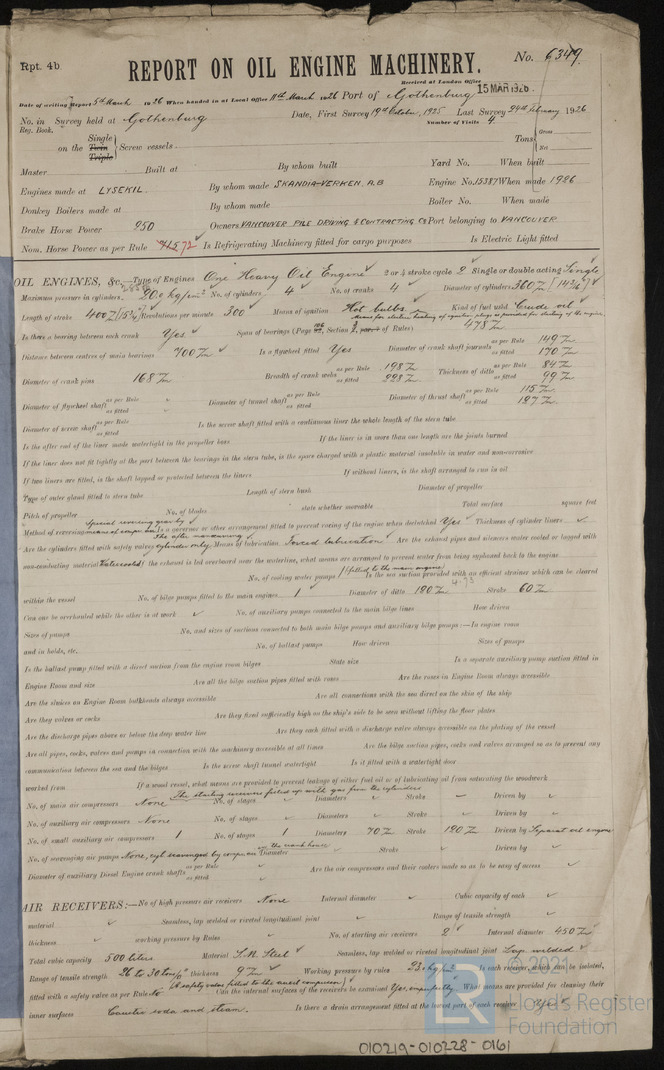 Rpt. 4b
REPORT ON OIL ENGINE MACHINERY.
No. 6349.
Received at London Office 15 MAR 1926
Date of writing Report 5th March 1926 When handed in at Local Office 11th March 1926 Port of Gothenburg
No. in Survey held at Gothenburg Date, First Survey 19th October, 1925 Last Survey 24th February 1926
Reg. Book. Number of Visits 4
on the Single Twin Triple Screw vessels Tons Gross Net
Master Built at By whom built Yard No. When built
Engines made at LYSEKIL. By whom made SKANDIA-VERKEN, A.B Engine No. 15387 When made 1926
Donkey Boilers made at By whom made Boiler No. When made
Brake Horse Power 250 Owners VANCOUVER PILE DRIVING & CONTRACTING Co Port belonging to VANCOUVER
Nom. Horse Power as per Rule 72 Is Refrigerating Machinery fitted for cargo purposes Is Electric Light fitted
OIL ENGINES, &c. Type of Engines One Heavy Oil Engine 2 or 4 stroke cycle 2 Single or double acting Single
Maximum pressure in cylinders No. of cylinders 4 No. of cranks 4 Diameter of cylinders 360
Length of stroke 400 Revolutions per minute 300 Means of ignition Hot bulbs Kind of fuel used Crude oil
Is there a bearing between each crank Yes Span of bearings (Page Section of Rules) 478
Distance between centres of main bearings 700 Is a flywheel fitted Yes Diameter of crank shaft journals as per Rule 149 as fitted 170
Diameter of crank pins 168 Breadth of crank webs as per Rule 198 as fitted 228 Thickness of ditto as per Rule 84 as fitted 99
Diameter of flywheel shaft as per Rule as fitted Diameter of tunnel shaft as per Rule as fitted Diameter of thrust shaft as per Rule 115 as fitted 127
Diameter of screw shaft as per Rule as fitted Is the screw shaft fitted with a continuous liner the whole length of the stern tube
Is the after end of the liner made watertight in the propeller boss If the liner is in more than one length are the joints burned
If the liner does not fit tightly at the part between the bearings in the stern tube, is the space charged with a plastic material insoluble in water and non-corrosive
If two liners are fitted, is the shaft lapped or protected between the liners If without liners, is the shaft arranged to run in oil
Type of outer gland fitted to stern tube Length of stern bush Diameter of propeller
Pitch of propeller No. of blades state whether moveable Total surface square feet
Method of reversing Special reversing gear by means of Is a governor or other arrangement fitted to prevent racing of the engine when declutched Yes Thickness of cylinder liners
Are the cylinders fitted with safety valves The after cylinder only Means of lubrication Forced lubrication Are the exhaust pipes and silencers water cooled or lagged with
non-conducting material Watercooled If the exhaust is led overboard near the waterline, what means are arranged to prevent water from being syphoned back to the engine
No. of cooling water pumps 1 (fitted to the main engine) Is the sea suction provided with an efficient strainer which can be cleared
within the vessel No. of bilge pumps fitted to the main engines 1 Diameter of ditto 120 Stroke 60
Can one be overhauled while the other is at work No. of auxiliary pumps connected to the main bilge lines How driven
Sizes of pumps No. and sizes of suctions connected to both main bilge pumps and auxiliary bilge pumps:—In engine room
and in holds, etc. No. of ballast pumps How driven Sizes of pumps
Is the ballast pump fitted with a direct suction from the engine room bilges State size Is a separate auxiliary pump suction fitted in
Engine Room and size Are all the bilge suction pipes fitted with roses Are the roses in Engine Room always accessible
Are the sluices on Engine Room bulkheads always accessible Are all connections with the sea direct on the skin of the ship
Are they valves or cocks Are they fixed sufficiently high on the ship's side to be seen without lifting the floor plates
Are the discharge pipes above or below the deep water line Are they each fitted with a discharge valve always accessible on the plating of the vessel
Are all pipes, cocks, valves and pumps in connection with the machinery accessible at all times Are the bilge suction pipes, cocks and valves arranged so as to prevent any
communication between the sea and the bilges Is the screw shaft tunnel watertight Is it fitted with a watertight door
worked from If a wood vessel, what means are provided to prevent leakage of either fuel oil or of lubricating oil from saturating the woodwork
The starting receivers filled up with gas from the cylinders
No. of main air compressors None No. of stages Diameters Stroke Driven by
No. of auxiliary air compressors None No. of stages Diameters Stroke Driven by
No. of small auxiliary air compressors 1 No. of stages 1 Diameters 70 Stroke 120 Driven by Separat oil engine
No. of scavenging air pumps None, cyl scavenged by Diameter Stroke Driven by
Diameter of auxiliary Diesel Engine crank shafts as per Rule as fitted Are the air compressors and their coolers made so as to be easy of access
AIR RECEIVERS:—No. of high pressure air receivers None Internal diameter Cubic capacity of each
material Seamless, lap welded or riveted longitudinal joint Range of tensile strength
thickness working pressure by Rules No. of starting air receivers 2 Internal diameter 450
Total cubic capacity 500 liters Material S.M. Steel Seamless, lap welded or riveted longitudinal joint Lap welded
Range of tensile strength 26 to 30 thickness 9 Working pressure by rules Is each receiver, which can be isolated,
fitted with a safety valve as per Rule No Can the internal surfaces of the receivers be examined Yes, What means are provided for cleaning their
inner surfaces Caustic soda and steam. Is there a drain arrangement fitted at the lowest part of each receiver Yes
© 2021
LR
Lloyd's Register
Foundation
010219-010228-0161